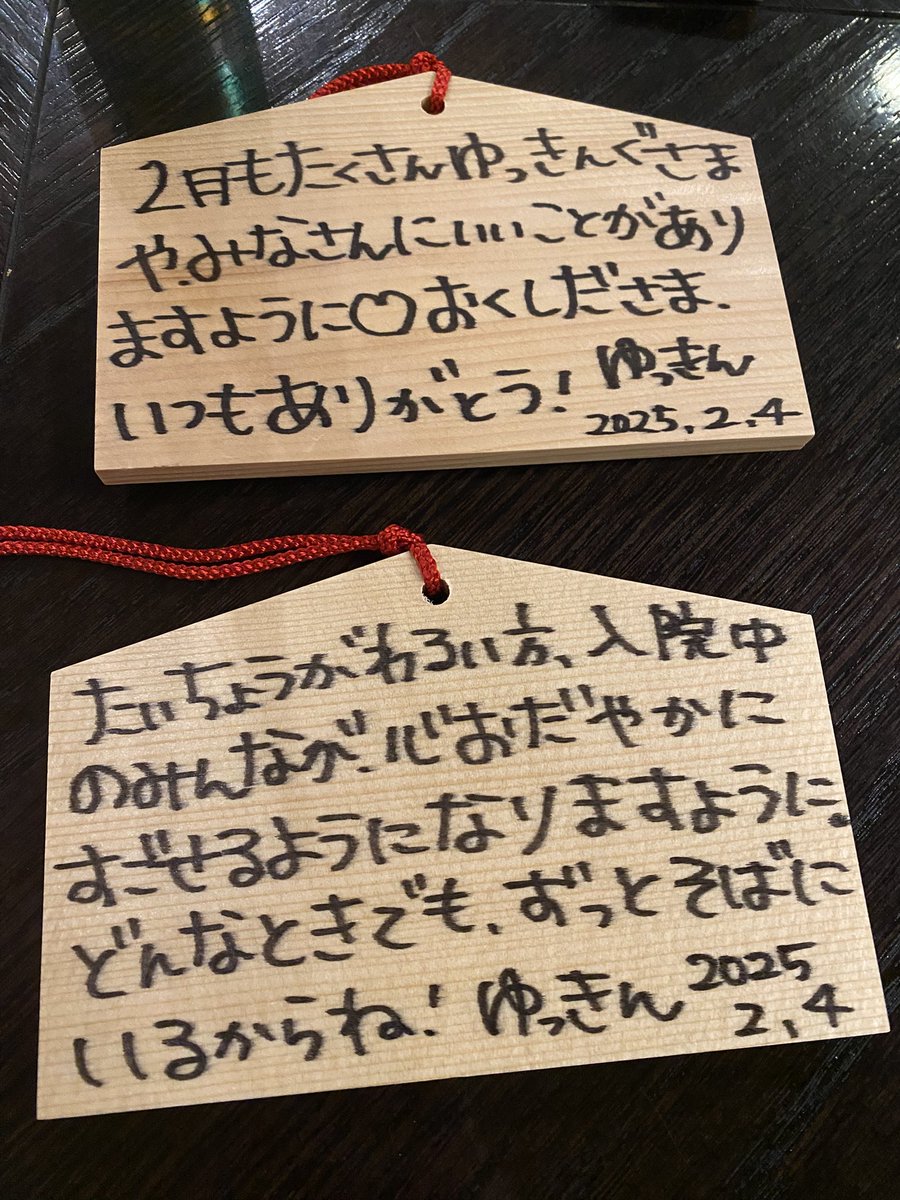 2月もたくさんゆっきんぐさま
や、みなさんにいいことがあり
ますように♡おくしださま、
いつもありがとう! ゆっきん
2025.2.4
たいちょうがわるい方、入院中
のみんなが、心おだやかに
すごせるようになりますように。
どんなときでも、ずっとそばに
いるからね! ゆっきん 2025
2.4